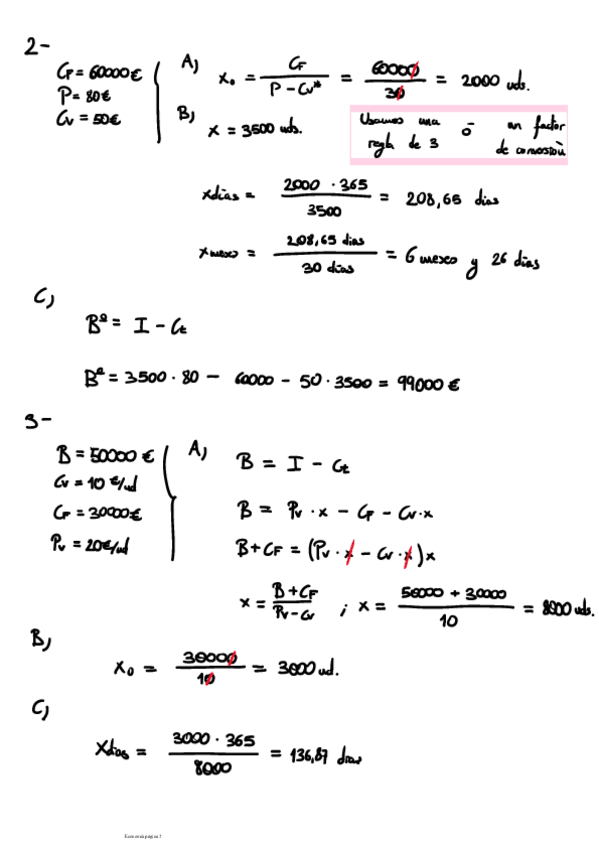 2-
CF = 60000 €
P = 80 €
Cv = 50 €
A) x₀ = CF / (P - Cv*) = 60000 / 30 = 2000 uds.
B) x = 3500 uds.
Usamos una regla de 3 ó un factor de conversión
xdías = 2000 · 365 / 3500 = 208,65 días
xmeses = 208,65 días / 30 días = 6 meses y 26 días
C)
Bº = I - Ct
Bº = 3500 · 80 - 60000 - 50 · 3500 = 99000 €
3-
B = 50000 €
Cv = 10 €/ud
CF = 30000 €
Pv = 20 €/ud
A) B = I - Ct
B = Pv · x - CF - Cv · x
B + CF = (Pv · x - Cv · x) x
x = (B + CF) / (Pv - Cv) ; x = (50000 + 30000) / 10 = 8000 uds.
B)
x₀ = 30000 / 10 = 3000 ud.
C)
xdías = 3000 · 365 / 8000 = 136,87 días
Economía página 1